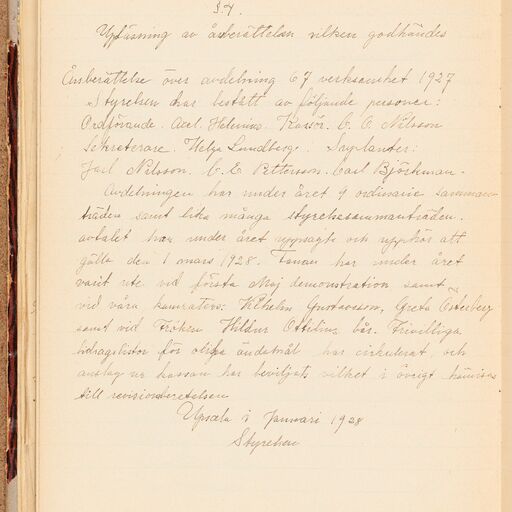 § 7.
Uppläsning av årsberättelsen vilken godhändes
Årsberättelse över avdelning 67 verksamhet 1927
Styrelsen har bestått av följande personer:
Ordförande. Axel. Helenius. Kassör. C. O. Nilsson
Sekreterare. Helga Lundberg. Suplanter:
Joel Nilsson. C. E. Pettersson. Carl Björkman.
Avdelningen har under året 9 ordinarie samman
träden samt lika många styrelsesammanträden.
avtalet har under året uppsagts och upphör att
gälla den 1 mars 1928. Fanan har under året
varit ute vid första Maj demonstration samt
vid våra kamraters: Vilhelm Gustavsson, Greta Österberg
samt vid Fröken Hildur Ottilius bår. Frivilliga
bidragslistor för olika ändamål har cirkulerat och
anslag ur kassan har beviljats vilket i övrigt hänvisas
till revisionsberetelsen
Upsala i Januari 1928
Styrelsen